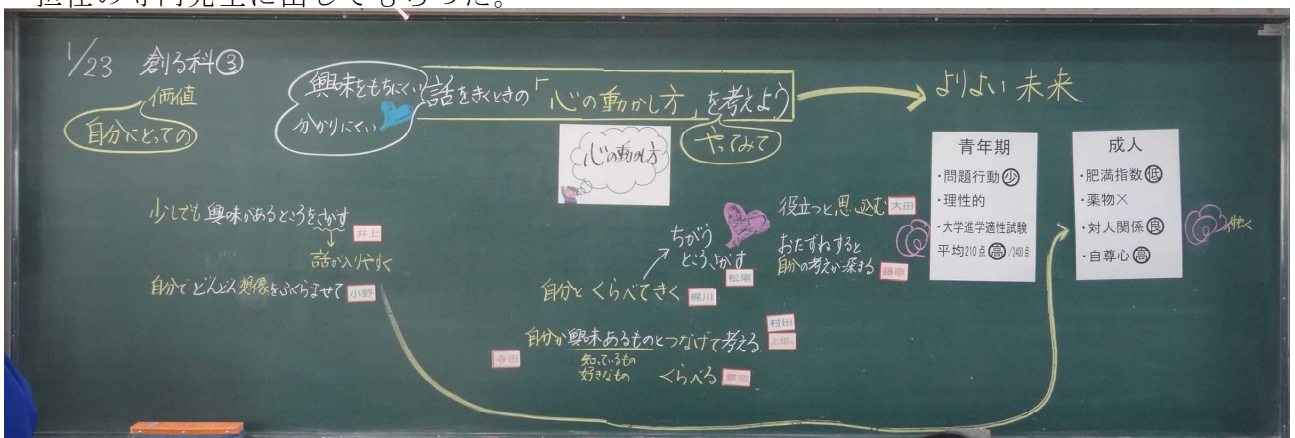 担任の寺岡先生に出してもらった。
1/23 創る科③
価値
自分にとっての
興味をもちにくい
分かりにくい
話をきくときの「心の動かし方」を考えよう
やってみて
よりよい未来
心の動かし方
青年期
・問題行動㊛
・理性的
・大学進学適性試験
平均210点高/2400点
成人
・肥満指数低
・薬物×
・対人関係良
・自尊心高
少しでも興味があるところをさがす
井上
話が入りやすく
自分でどんどん想像をふくらませて
小野
ちがう
ところさがす
松尾
自分とくらべてきく
梶川
役立つと思い込む
大田
おたずねすると
自分の考えが深まる
藤原
村田
自分が興味あるものとつなげて考える
上田
寺田
知っているもの
好きなもの
くらべる